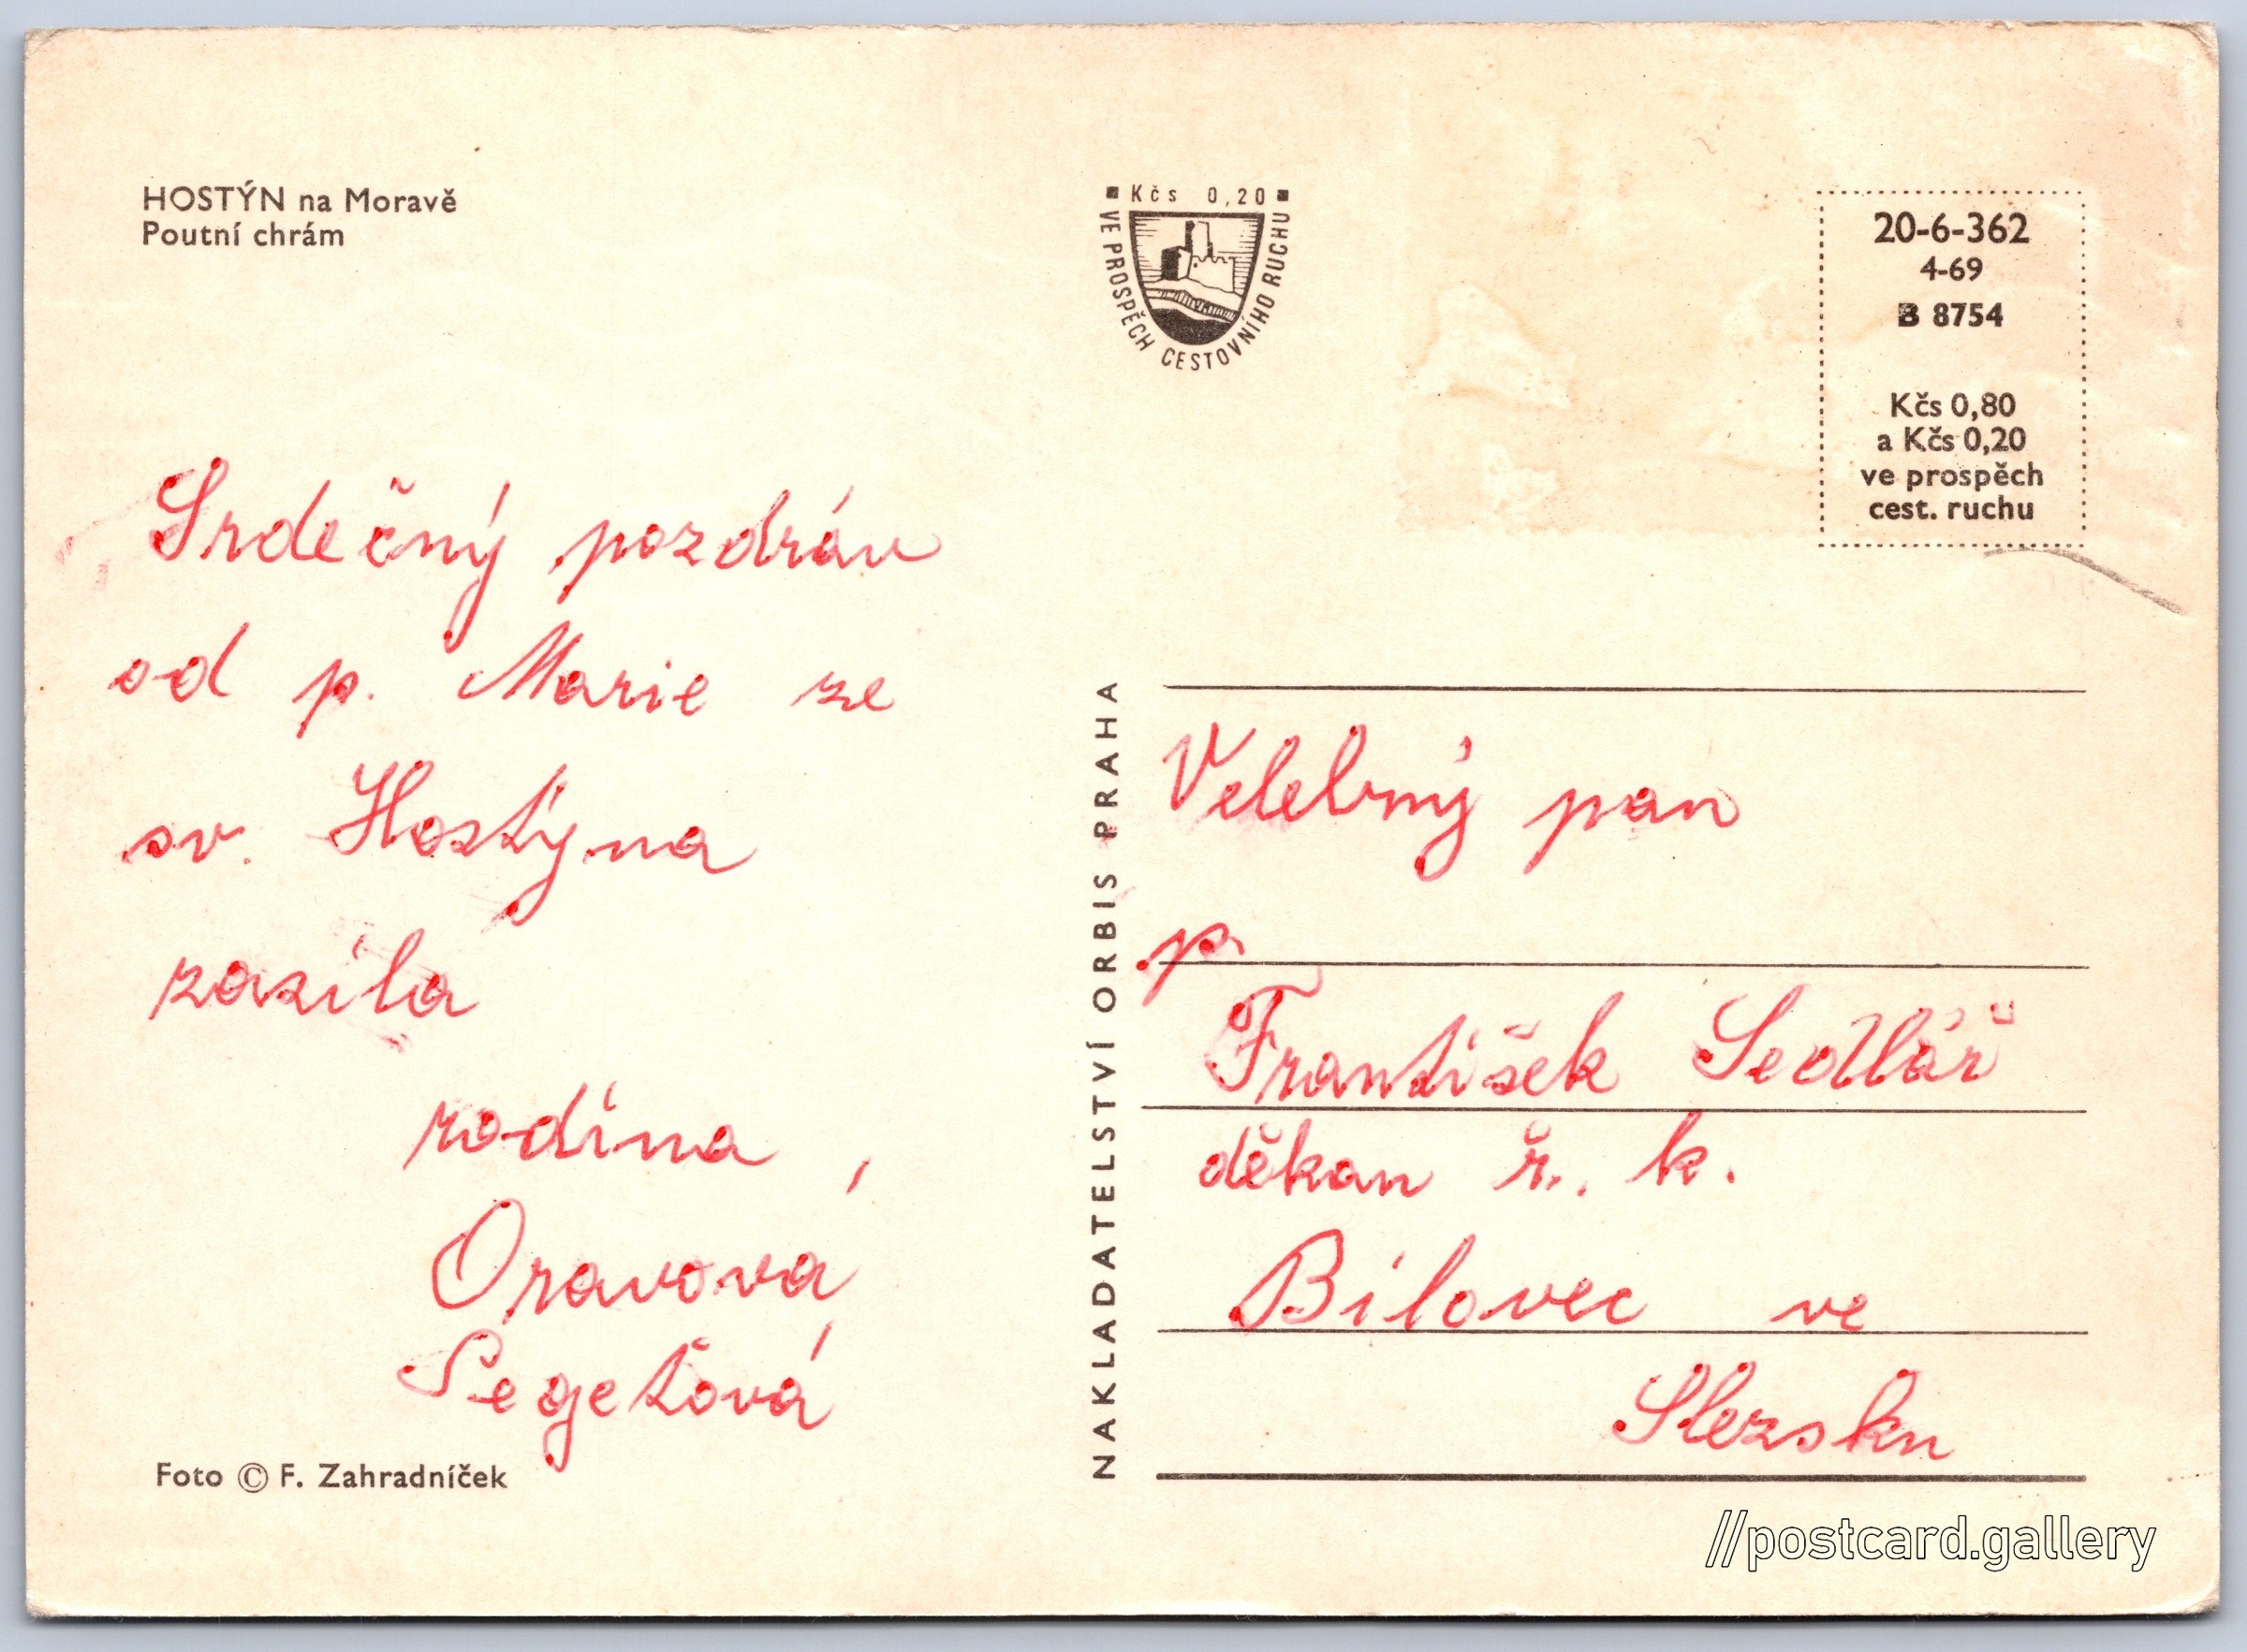 HOSTÝN na Moravě
Poutní chrám
Srdečný pozdrav
od p. Marie ze
sv. Hostýna
zasíla
rodina
Oravová,
Segeťová
Foto © F. Zahradníček
Kčs 0,20
VE PROSPĚCH CESTOVNÍHO RUCHU
NAKLADATELSTVÍ ORBIS PRAHA
20-6-362
4-69
B 8754
Kčs 0,80
a Kčs 0,20
ve prospěch
cest. ruchu
Velebný pan
p.
František Sedlář
děkan ř. k.
Bílovec ve
Slezsku
//postcard.gallery